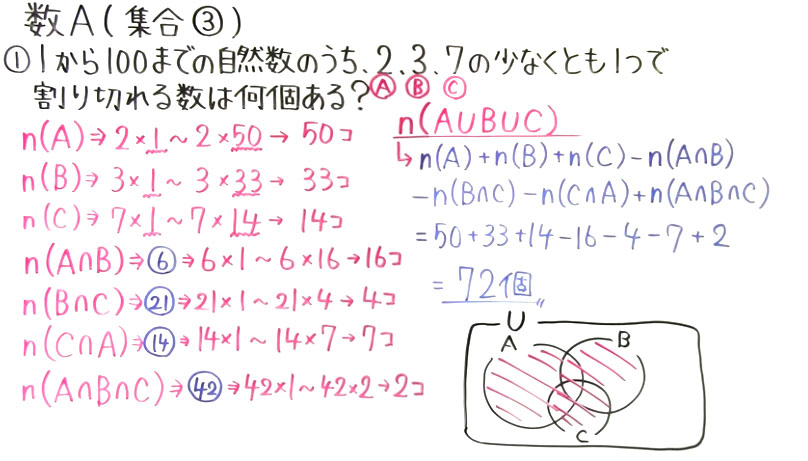 数A(集合③)
①1から100までの自然数のうち、2、3、7の少なくとも1つで
割り切れる数は何個ある?
Ⓐ Ⓑ Ⓒ
n(A)⇒2×1~2×50→50コ
n(B)⇒3×1~3×33→33コ
n(C)⇒7×1~7×14→14コ
n(A∩B)⇒⑥⇒6×1~6×16→16コ
n(B∩C)⇒㉑⇒21×1~21×4→4コ
n(C∩A)⇒⑭⇒14×1~14×7→7コ
n(A∩B∩C)⇒㊷⇒42×1~42×2→2コ
n(A∪B∪C)
↳n(A)+n(B)+n(C)-n(A∩B)
-n(B∩C)-n(C∩A)+n(A∩B∩C)
=50+33+14-16-4-7+2
=72個〃
U
A
B
C